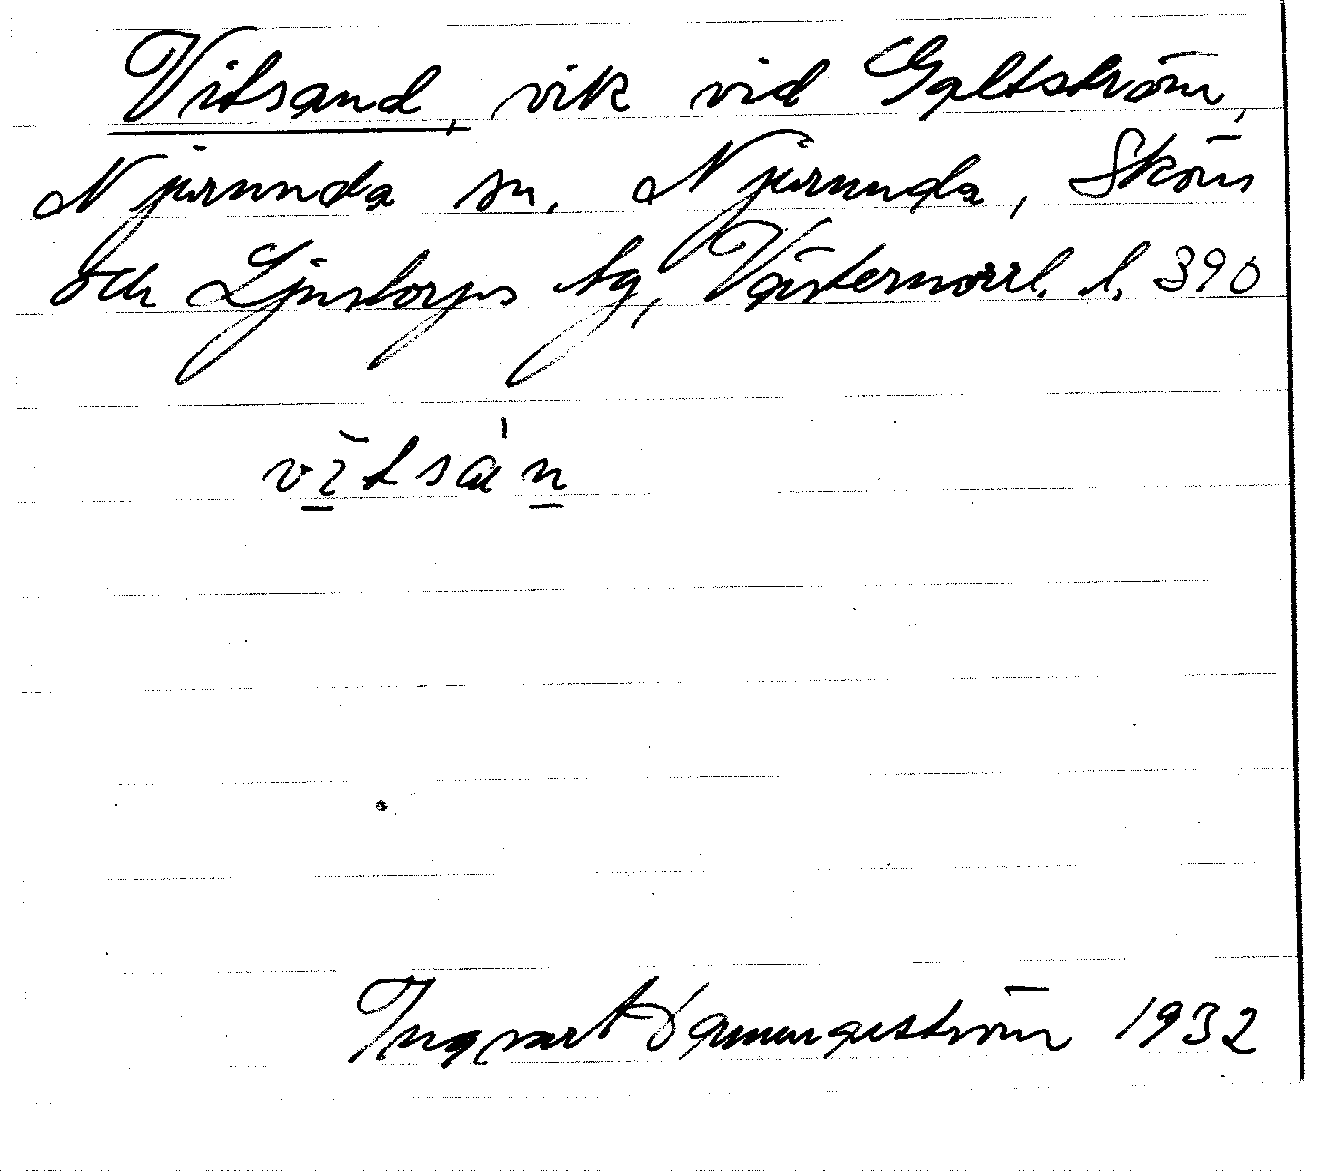 Vitsand, vik vid Galtström,
Njurunda sn. Njurunda, Sköns
och Ljustorps tg, Västernorrl. l. 390
vı̆tsàn
Ingvart 1932